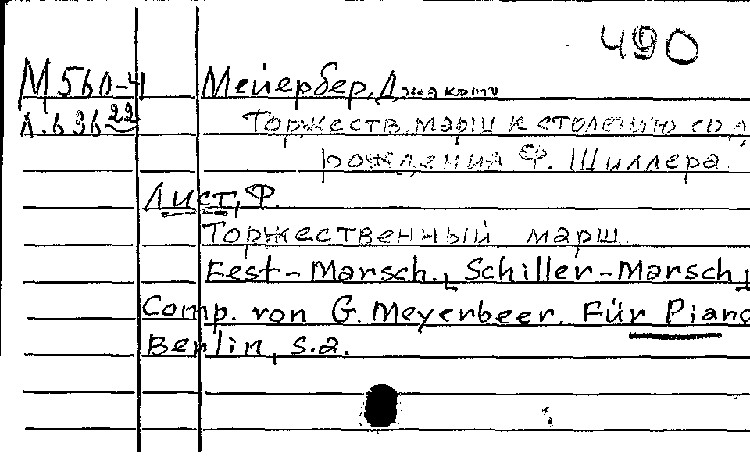 490
М560-4 Мейербер, Джакомо
Л.636 22 Торжеств. марш к столению со д
рождения Ф. Шиллера.
Лист, Ф.
Торжественный марш.
Fest-Marsch. Schiller-Marsch
Comp. von G. Meyerbeer. Für Piano
Berlin, s.a.